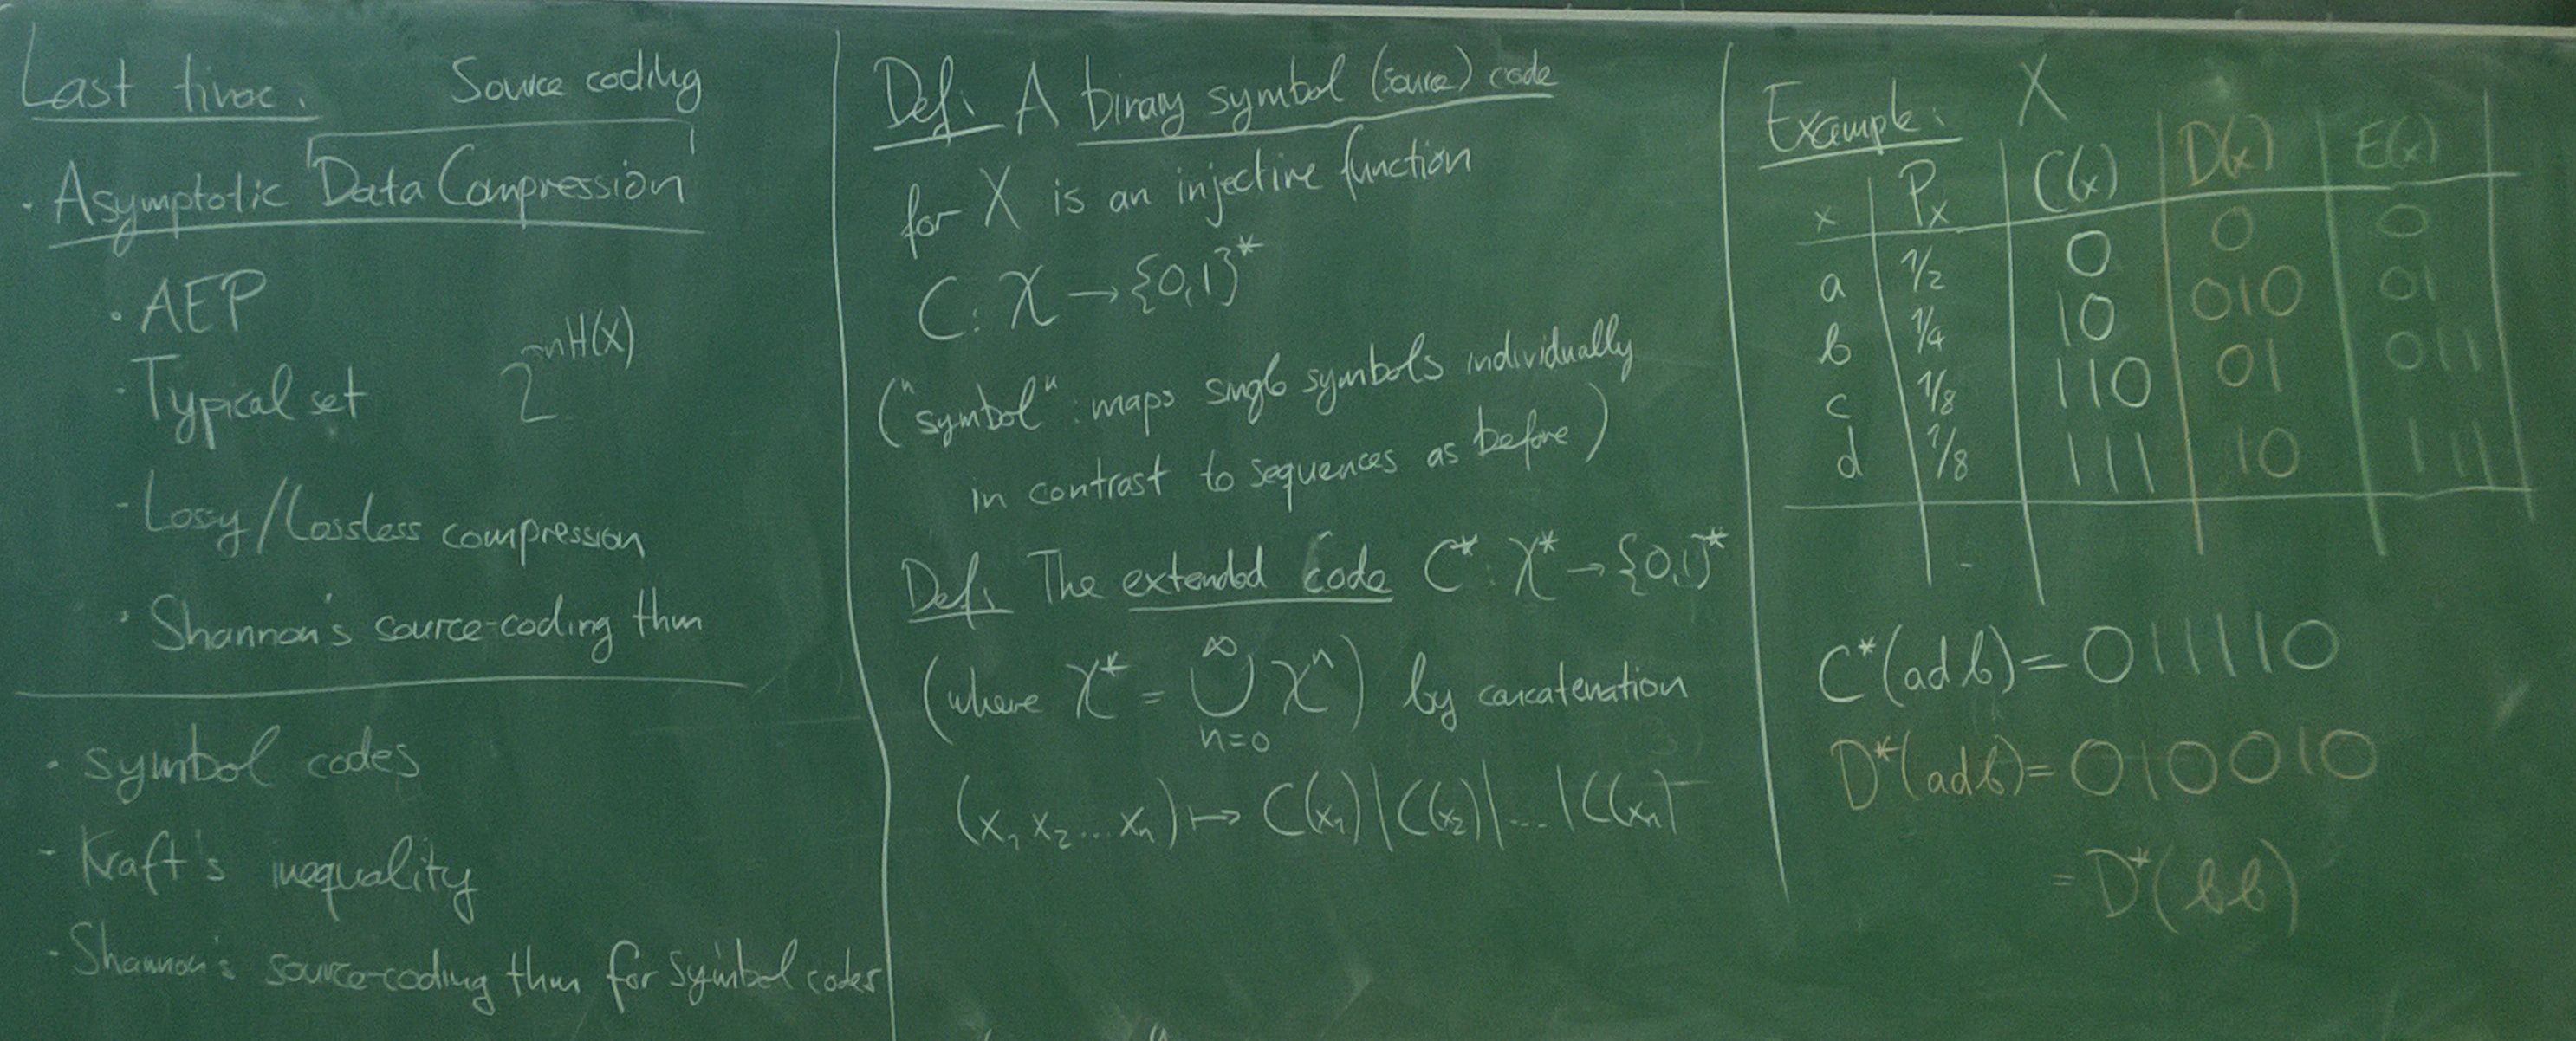 Last time:
Source coding
· Asymptotic Data Compression
· AEP
· Typical set 2^{-nH(X)}
· Lossy/lossless compression
· Shannon's source-coding thm
· symbol codes
· Kraft's inequality
· Shannon's source-coding thm for symbol codes
Def: A binary symbol (source) code
for X is an injective function
C: 𝒳 → {0,1}*
("symbol": maps single symbols individually
in contrast to sequences as before)
Def: The extended code C*: 𝒳* → {0,1}*
(where 𝒳* = ⋃_{n=0}^{∞} 𝒳^n) by concatenation
(x₁ x₂ ... xₙ) ↦ C(x₁)|C(x₂)|...|C(xₙ)
Example: X
x P_X C(x) D(x) E(x)
a 1/2 0 0 0
b 1/4 10 010 01
c 1/8 110 01 011
d 1/8 111 10 111
C*(adb) = 011110
D*(adb) = 010010
= D*(bb)